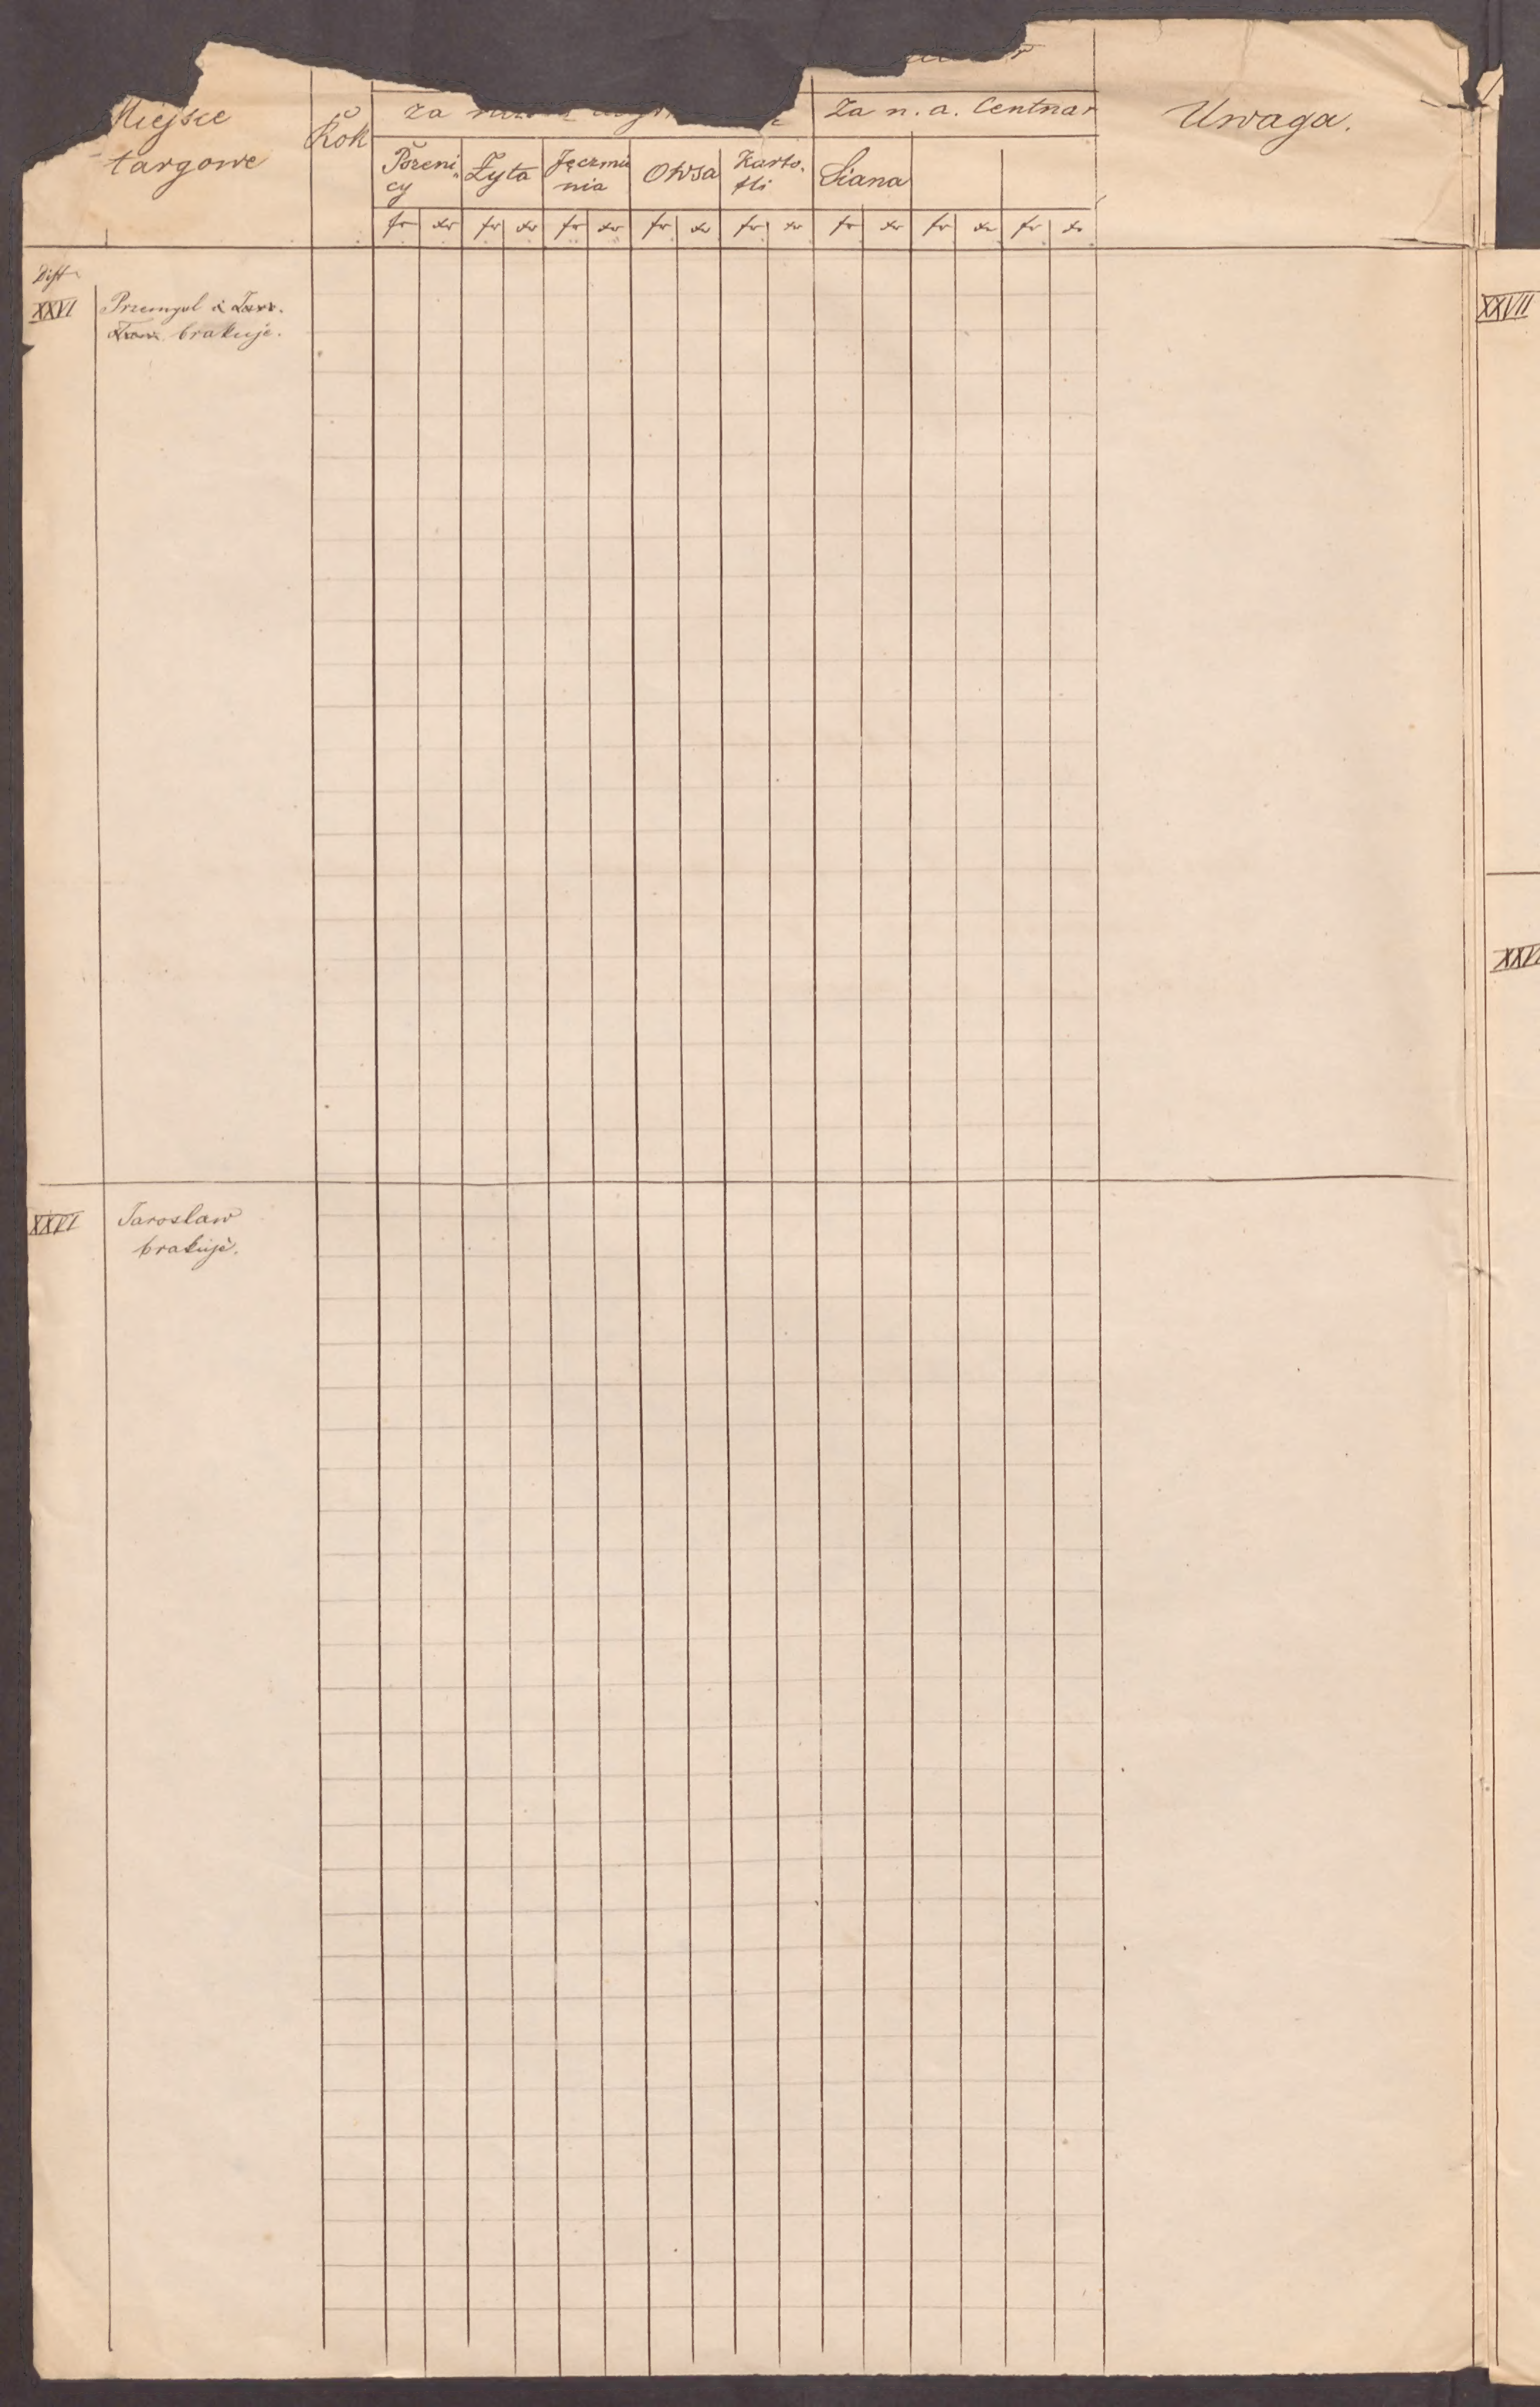 Miejsce
targowe
Rok
za
Za n. a. Centnar
Uwaga.
Pszeni
cy
Żyta
Jęczmie
nia
Owsa
Karto.
fli
Siana
fr xr fr xr fr xr fr xr fr xr fr xr fr xr fr xr
Dist
XXVI
Przemysl
brakuje.
XXVII
XXVI
Jaroslaw
brakuje.